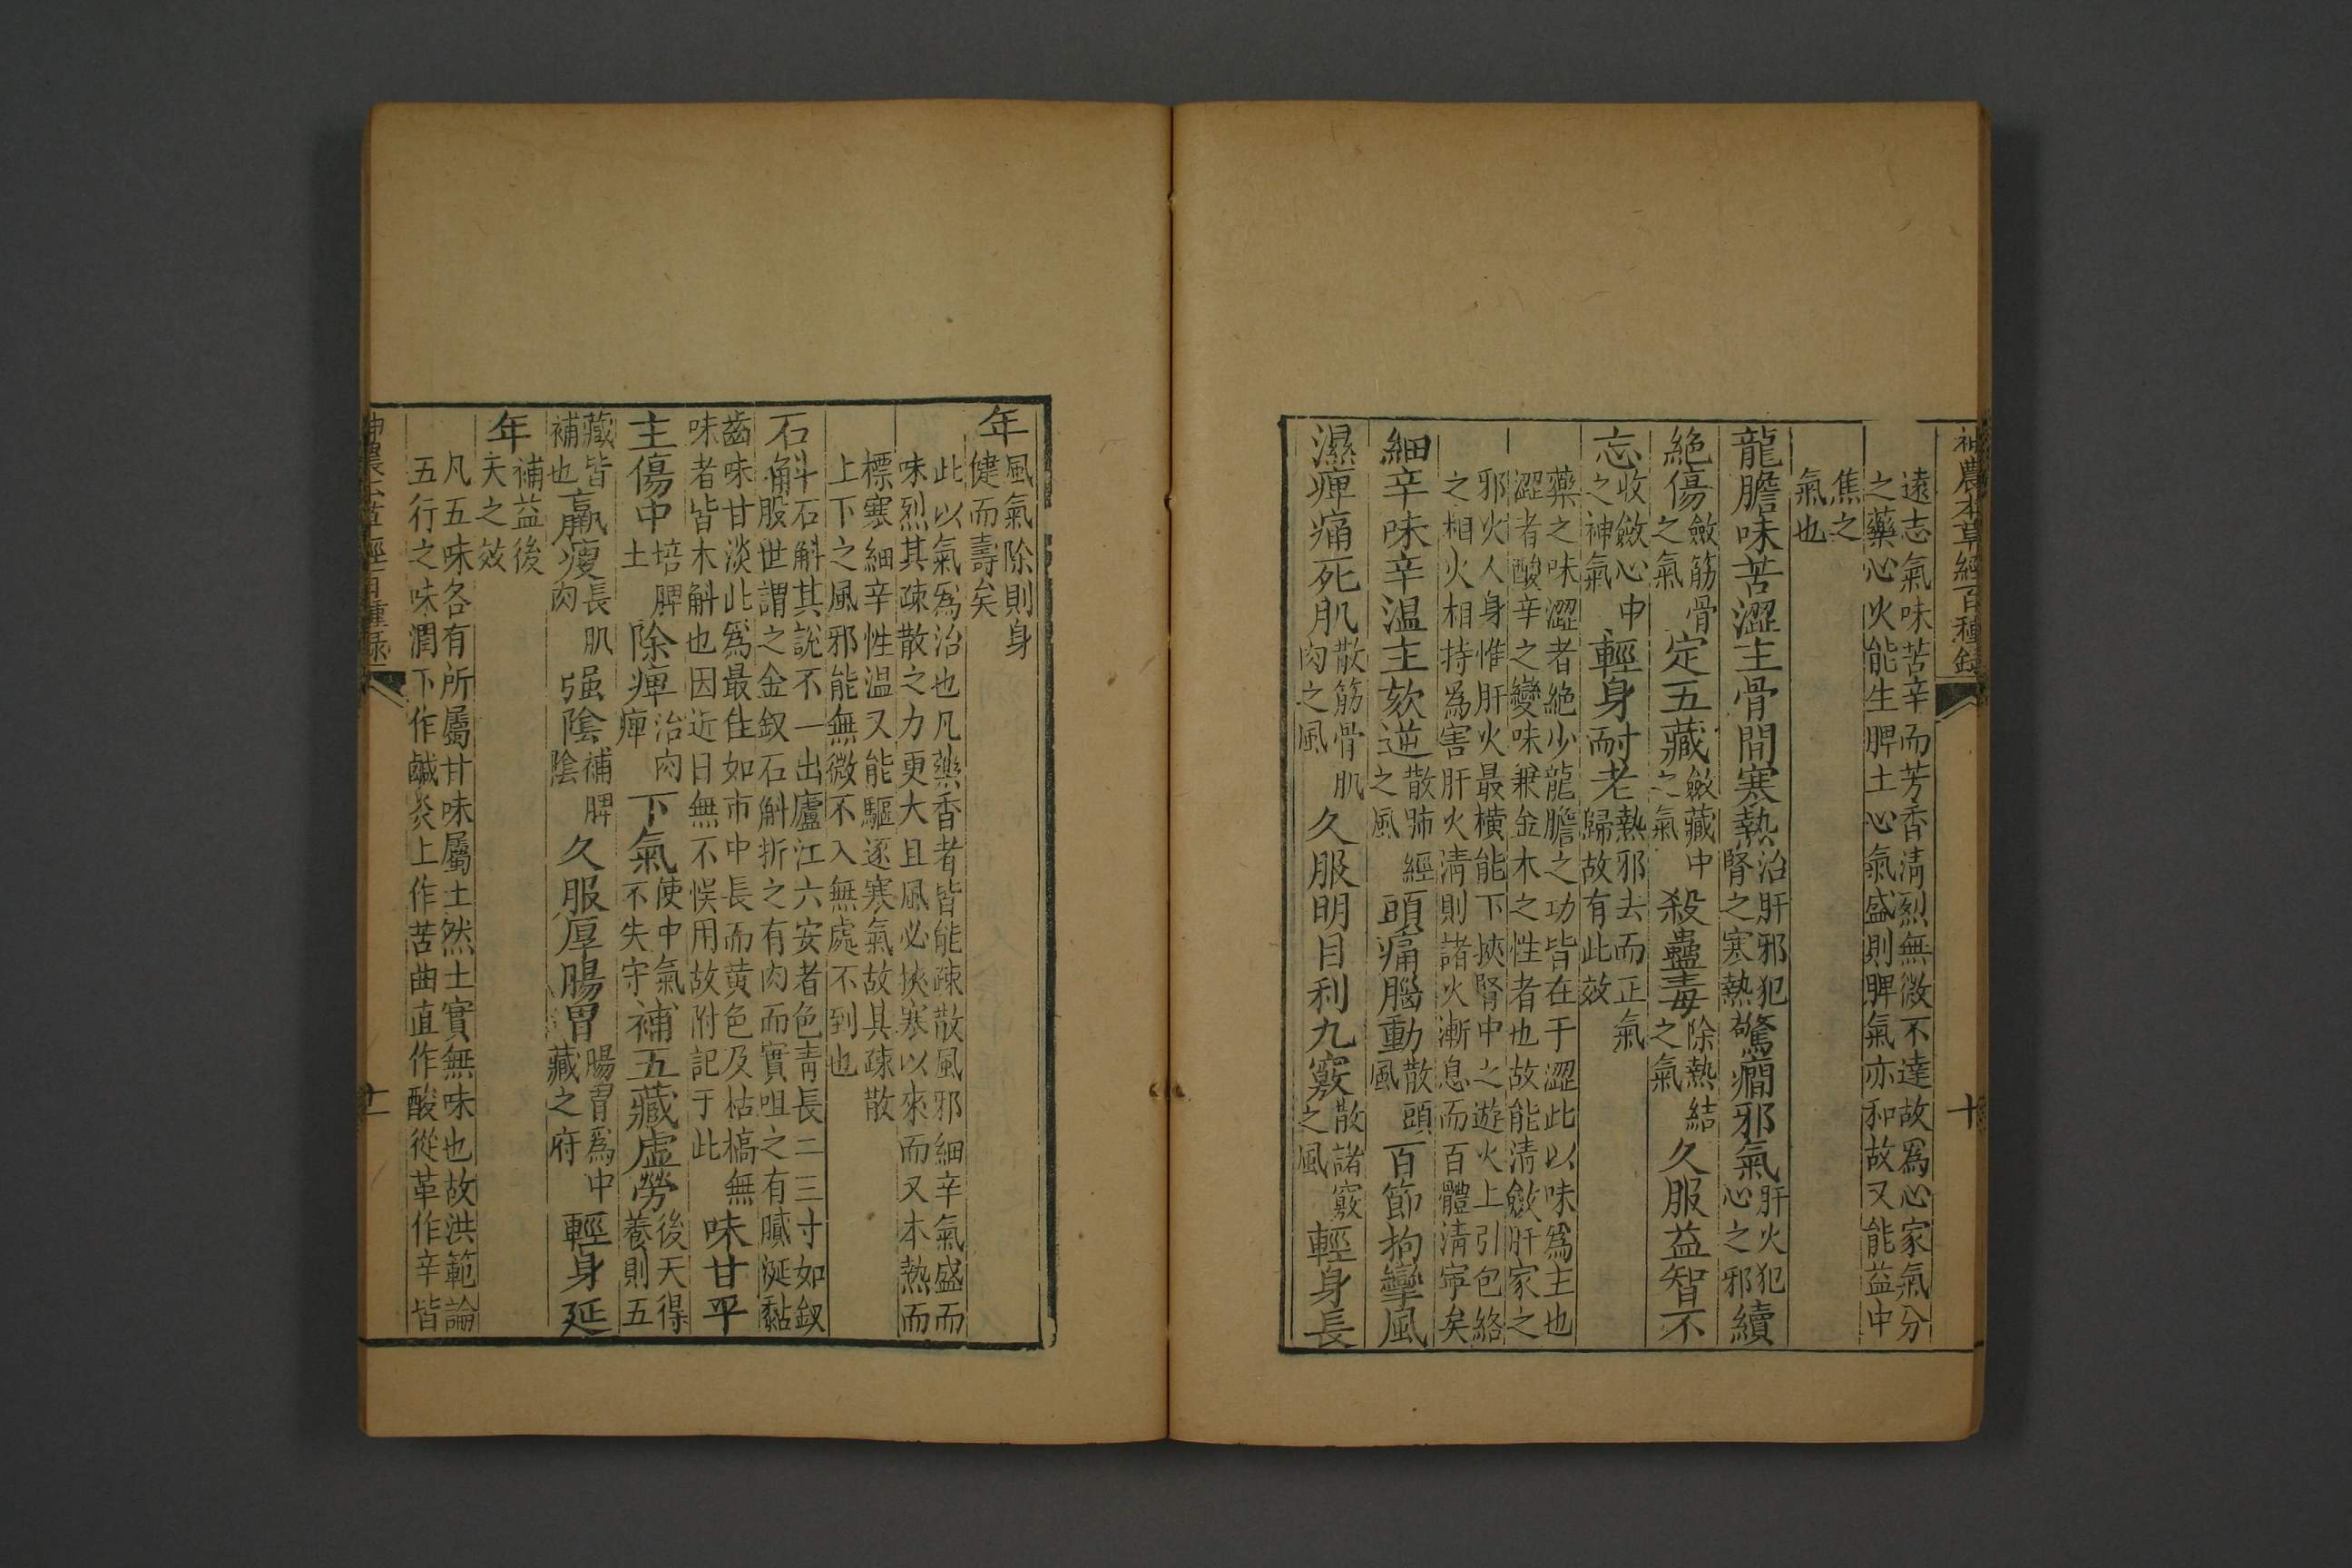 神農本草經百種錄
十
遠志氣味苦辛而芳香清烈無微不達故爲心家氣分
之藥心火能生脾土心氣盛則脾氣亦和故又能益中
焦之
氣也
龍膽味苦澀主骨間寒熱治肝邪犯腎之寒熱驚癇邪氣肝火犯心之邪續
絕傷斂筋骨之氣定五藏斂藏中之氣殺蠱毒除熱結之氣久服益智不
忘收斂心中之神氣輕身耐老熱邪去而正氣歸故有此效
藥之味澀者絕少龍膽之功皆在于澀此以味爲主也
澀者酸辛之變味兼金木之性者也故能清斂肝家之
邪火人身惟肝火最橫能下挾腎中之遊火上引包絡
之相火相持爲害肝火清則諸火漸息而百體清寧矣
細辛味辛温主欬逆散肺經之風頭痛腦動散頭風百節拘攣風
濕痺痛死肌散筋骨肌肉之風久服明目利九竅散諸竅之風輕身長
年風氣除則身健而壽矣
此以氣爲治也凡藥香者皆能疎散風邪細辛氣盛而
味烈其疎散之力更大且風必挾寒以來而又本熱而
標寒細辛性温又能驅逐寒氣故其疎散
上下之風邪能無微不入無處不到也
石斛斗石斛其說不一出廬江六安者色青長二三寸如釵
股世謂之金釵石斛折之有肉而實咀之有膩涎黏
齒味甘淡此爲最佳如市中長而黄色及枯槁無
味者皆木斛也因近日無不悞用故附記于此味甘平
主傷中培脾土除痺治肉痺下氣使中氣不失守補五藏虛勞後天得養則五
藏皆補也羸瘦長肌肉强陰補脾陰久服厚腸胃腸胃爲中藏之府輕身延
年補益後天之效
凡五味各有所屬甘味屬土然土實無味也故洪範論
五行之味潤下作鹹炎上作苦曲直作酸從革作辛皆